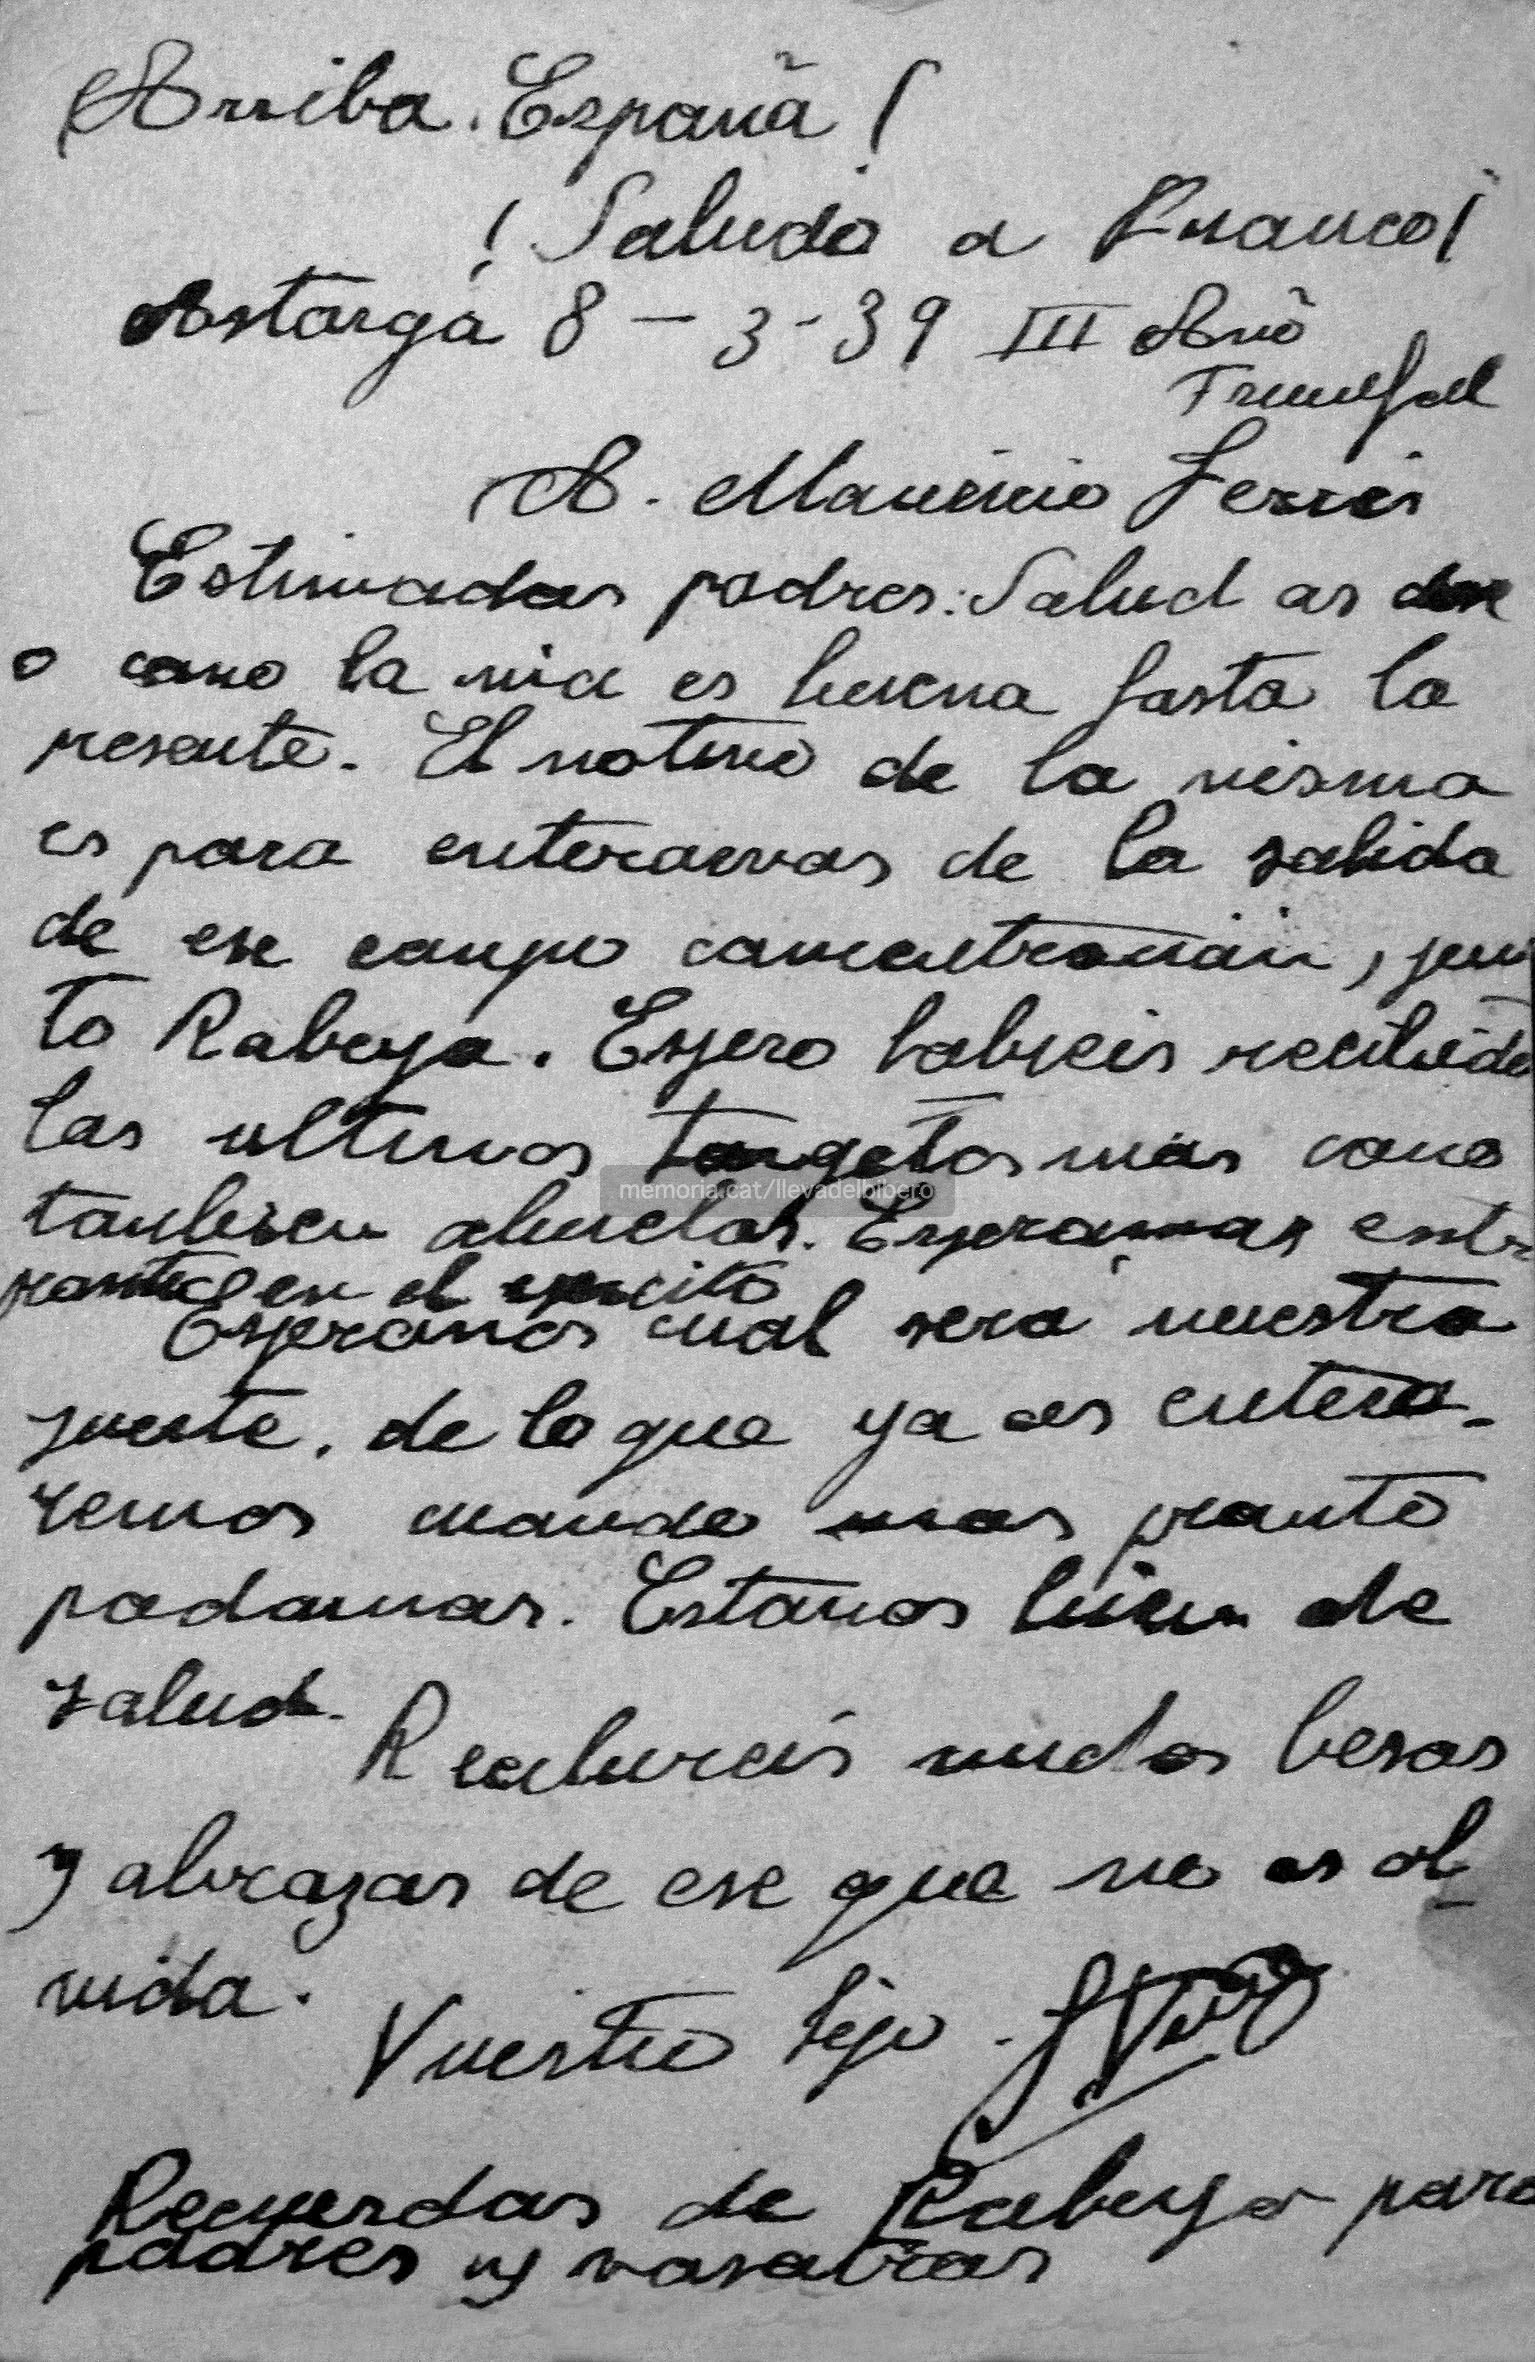 Arriba. España!
! Saludo a Franco!
Astorga 8 - 3 - 39 III Año
Triunfal
A. Mauricio Ferres
Estimados padres: Salud os dese
o como la mia es buena hasta la
presente. El motivo de la misma
es para enteraros de la salida
de ese campo concentración, jun
to Rabeya. Espero habreis recibido
las ultimas targetas mias como
tambien abuelos. Esperamos
en el ejercito
Esperamos cual sera nuestra
suerte. de lo que ya os entera-
remos cuando mas pronto
podamos. Estamos bien de
salud.
Recibireis muchos besos
y abrazos de ese que no os ol
vida.
Vuestro hijo.
Recuerdos de Rabeya para
padres y vosotros
memoria.cat/llevadelbibero